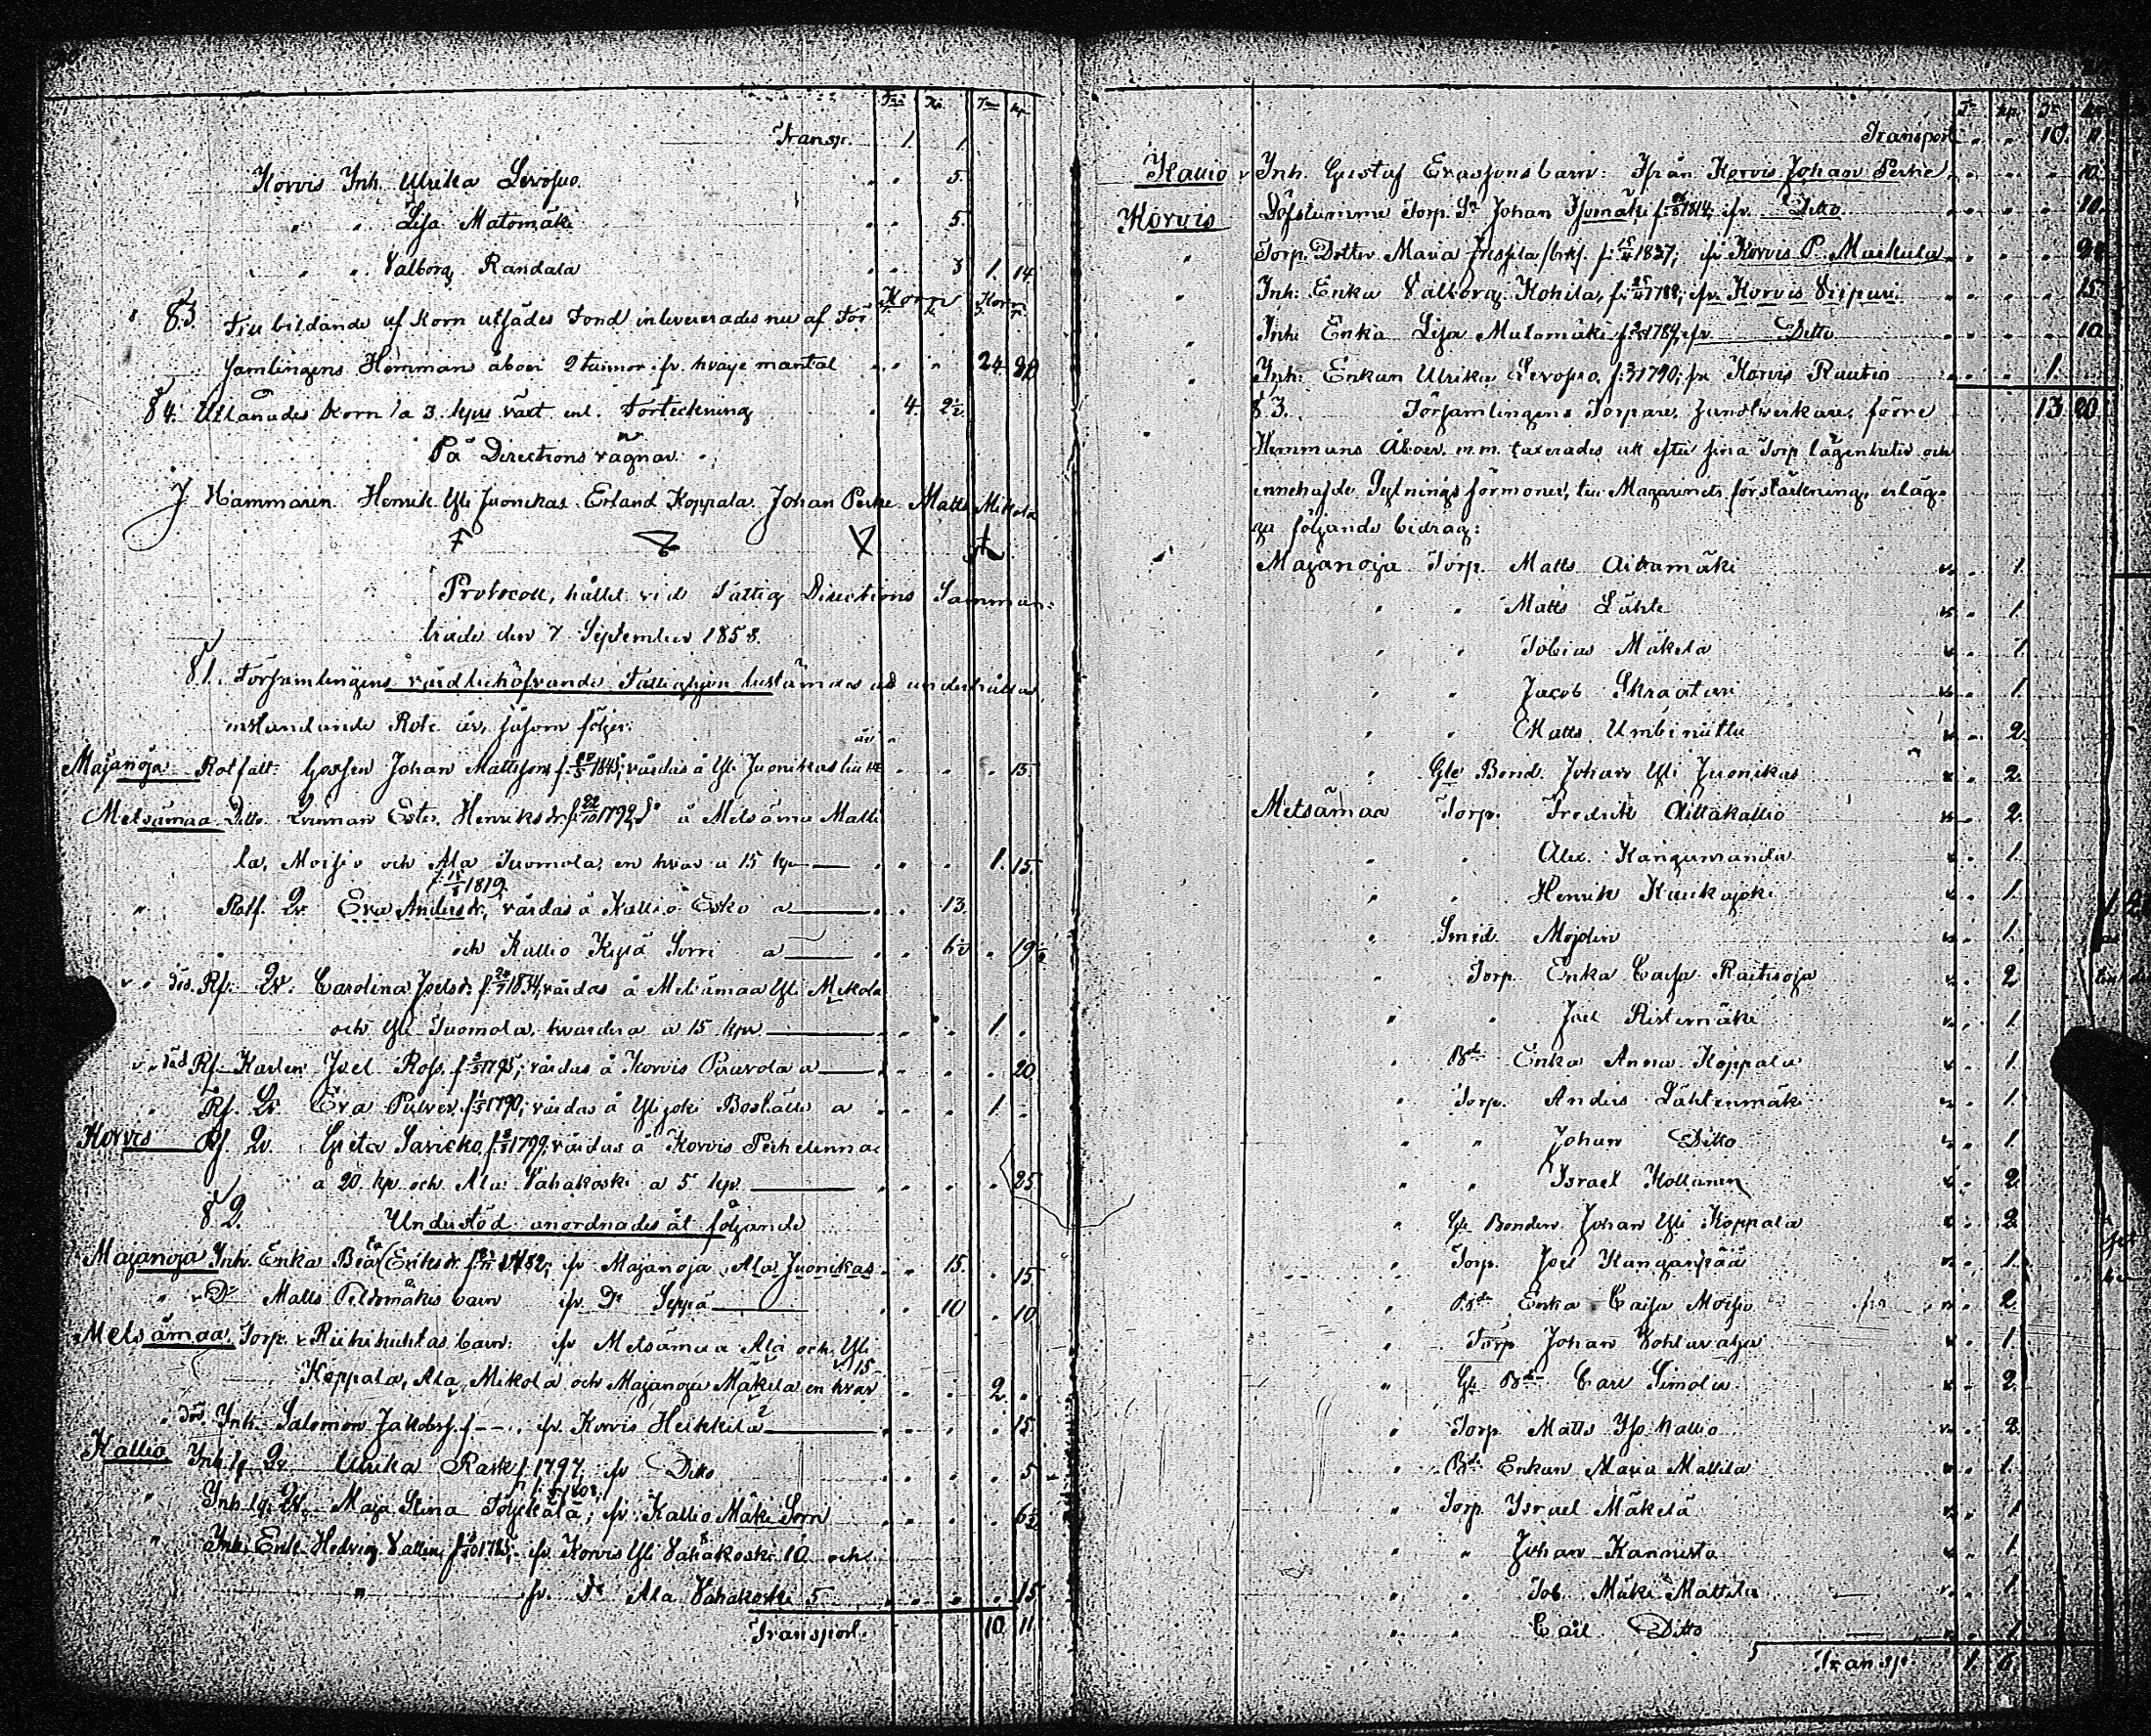 Transp. 1 1
Korvis Inh. Ulrika Levossuo. " " 5.
" " Lisa Matomäki " " 5.
" " Valborg Randala " " 3 1. 14.
Korn Korn
§ 3. Till bildande af Korn utsädes Fond inlevererades nu af För
samlingens Hemman åboer 2 tunnor fr. hvarje mantal " " " 24 20
§ 4. Utlånades Korn à 3. kpns växt enl. Förteckning " 4. 2½
På Directions vägnar.
J Hammarén Henrik Yli Juonikas Erland Koppala Johan Perhe Matts Mikola
Protocoll, hållet vid Fattig Directions Samman-
träde den 7 September 1858.
§ 1. Församlingens vårdbehöfvande Fattighjon bestämdes att underhållas
instundande Rote år, såsom följer:
Majanoja Rotfatt: Gossen Johan Mattsson f. 1845; vårdas å Yli Juonikas " " " 15.
Metsämaa Ditto Qvinnan Ester Henriksdr f. 22/10 1792, d:o å Metsämaa Matti
la, Moisio och Ala Tuomola, en hvar a 15 kpr " " 1. 15.
f. 15/8 1819
" Rotf. Qv. Eva Andersdr, vårdas å Kallio Esko a " " 13.
och Kallio Kylä Sorri a " " 6½ " 19½
" död. Rf. Qv. Carolina Joelsdr f. 1834, vårdas å Metsämaa Yli Mikola
och Yli Tuomola, hvardera a 15 kpr. " " " 1. "
" död Rf. Karlen Joel Ross f. 1795; vårdas å Korvis Piuvola a " " " " 20
" Rf. Qv. Eva Pulver f. 1790; vårdas å Ylijoki Boställe a " " " 1. "
Korvis Rf. Qv. Greta Saricko, f. 1799; vårdas å Korvis Perhelenma
a 20 kpr och Ala Vähäkoski a 5 kpr. " " " " 25.
§ 2. Understöd anordnades åt följande
Majanoja Inh. Enka Beata Eriksdr f. fr Majanoja Ala Juonikas " " 15. " 15
" " D:o Matts Peldomäkis barn fr D:o Seppä " " 10 " 10
Metsämaa Torp. Riihihuhtas barn: fr Metsämaa Ala och Yli
Koppala, Ala Mikola och Majanoja Mäkilä en hvar 15 " " " 2. "
" död. Inh. Salomon Jakobss. f. – – . fr. Korvis Heikkilä " " " " 15
Kallio Inh. lg Qv Ulrika Rask f. 1797, fr Ditto " " " " 5
" Inh. lg. Qv. Maja Stina fr. Kallio Mäki Sorri " " " " 6½
" Inh. Enk. Hedvig Vallin, f. 1785, fr Korvis Yli Vähäkoski 10 och
" fr. D:o Ala Vähäkoski 5 " " " " 15
Transport. 10 11
Transport " " 10. 11.
Kallio Inh. Gustaf Erassons barn: Ifrån Korvis Johan Perhe " " " " 10.
Korvis Döfstumme Torp. Sn Johan Isomäki f. 1814, fr. Ditto " " " " 10.
" Torp. Dotter Maria f. 1837; fr Korvis P. Markula
" Inh. Enka Valborg Kohila, f. 1788; fr. Korvis Viipuri " " " " 15
" Inh. Enka Lisa Matomäki f. 1789, fr. Ditto " " " " 10
" Inh. Enkan Ulrika Levossuo, f. 1790; fr Korvis Rautio " " " 1.
§ 3. Församlingens Torpare, Handtverkare, förre 13 20
Hemmans Åboer m.m. taxerades att efter sina Torp lägenheter och
innehafde Sytnings förmoner, till Magazinets förstärkning, erläg-
ga följande bidrag:
Majanoja Torp. Matts Aittamäki " " 1.
" " Matts Lähte " " 1.
" " Tobias Mäkelä " " 1.
" " Jacob Skraatari " " 1.
" " Matts Umbiniittu " " 2
" Gle Bond. Johan Yli Juonikas " " 2.
Metsämaa Torp. Fredrik Aittakallio " " 2.
" " Alex. Kangumanda " " 1.
" " Henrik Kaukajoki " " 1.
" Smed. Mojdin " " 1.
" Torp. Enka Caisa Raitisoja " " 2
" " Joel Ristimäki " " 1
" Bde Enka Anna Koppala " " 1.
" Torp. Anders Lähteenmäki " " 1.
" " Johan Ditto " " 1.
" " Israel Kollanen " " 2.
" Gle Bonden Johan Yli Koppala " " 2.
" Torp. Joel Kanganpää " " 1.
" Bde Enka Caisa Moisio " " 2.
" Torp Johan " " 1.
" Gle Bde Carl Simola " " 2.
" Torp. Matts Iso Kallio " " 2.
" Bde Enkan Maria Mattila " " 1.
" Torp. Israel Mäkelä " " 1
" " Johan Kannisto " " 1
" " Tob. Mäki Mattila " " 1
" " Carl Ditto " " 1
Transp 1. 6.